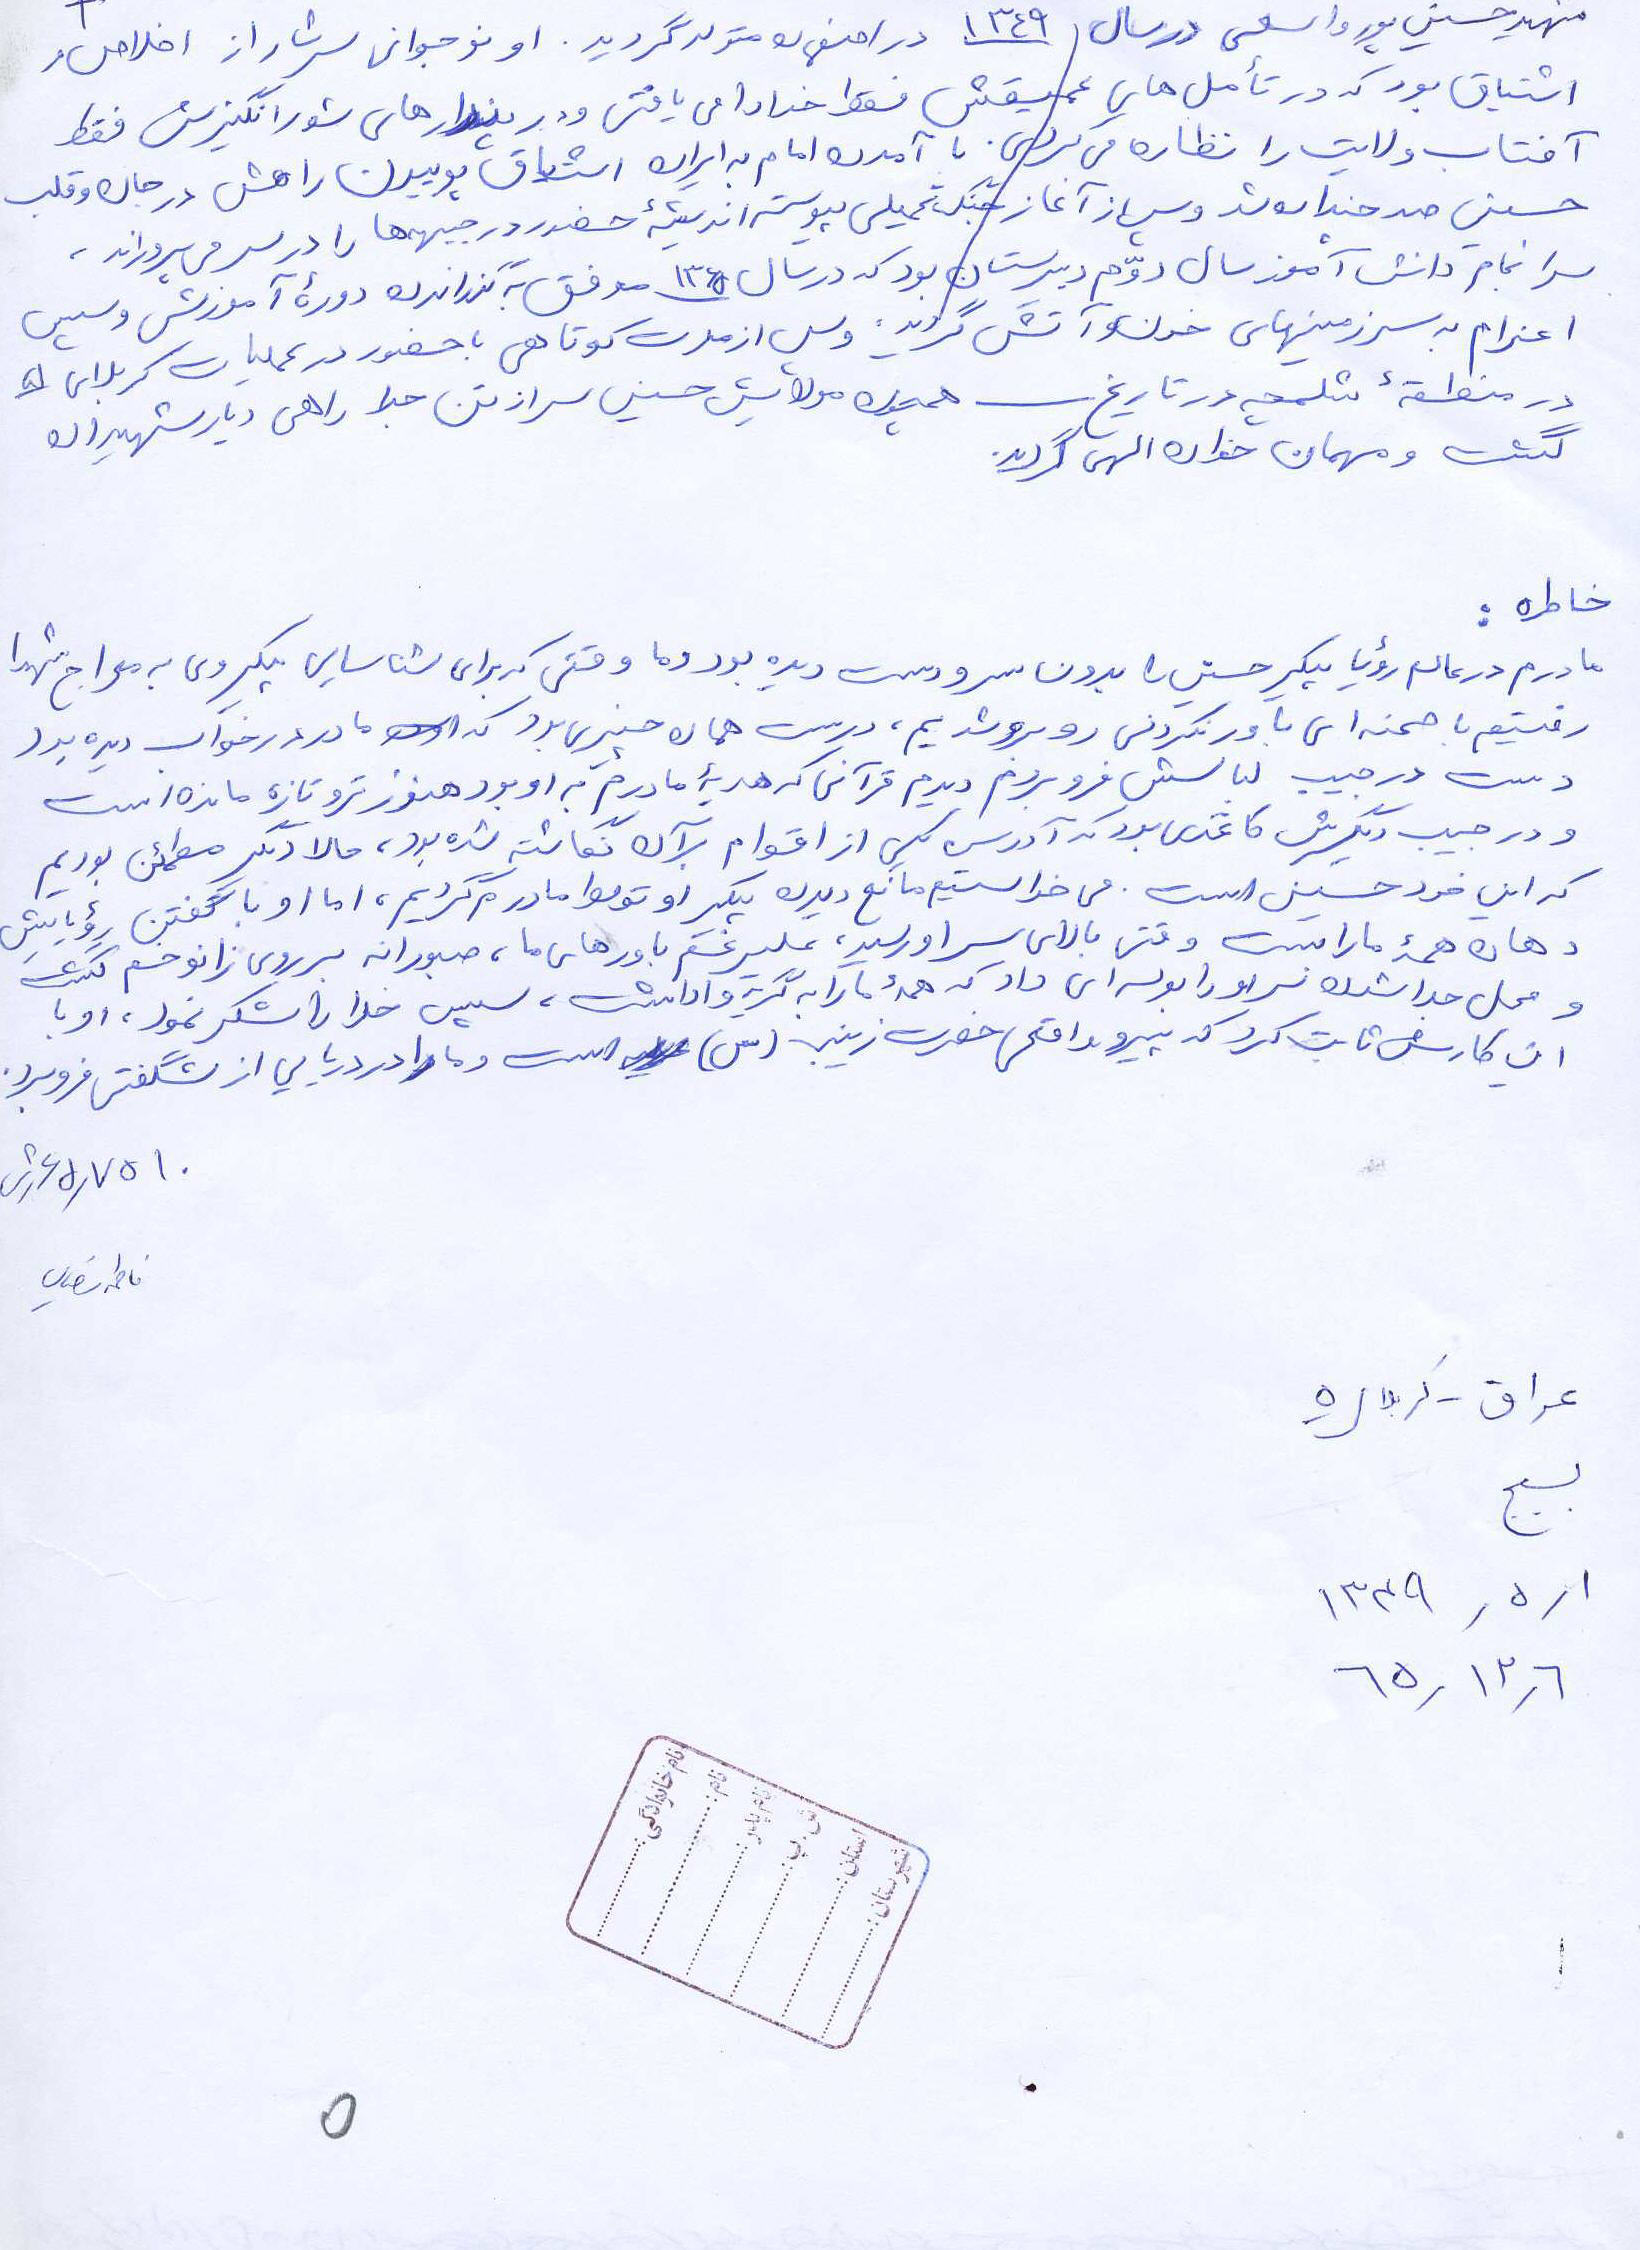 شهید حسین پورواسعی در سال ١٣٤٩ در اصفهان متولد گردید. او نوجوانی سرشار از اخلاص و
اشتیاق بود که در تأمل های عمیقش فقط خدا را می یافت و در پندارهای شورانگیزش فقط
آفتاب ولایت را نظاره می کرد. با آمدن امام به ایران اشتیاق پوییدن راهش در جان و قلب
حسین صد چندان شد و پس از آغاز جنگ تحمیلی پیوسته اندیشهٔ حضور در جبهه ها را در سر می پروراند،
سرانجام دانش آموز سال دوّم دبیرستان بود که در سال ١٣٦٥ موفق به گذراندن دورهٔ آموزشی و سپس
اعزام به سرزمینهای خون و آتش گردید. و پس از مدت کوتاهی با حضور در عملیات کربلای ٥
در منطقهٔ شلمچه در تاریخ ـــ همچون مولایش حسین سر از تن جدا راهی دیار شهیدان
گشت و مهمان خوان الهی گردید.
خاطره :
مادرم در عالم رؤیا پیکر حسین را بدون سر و دست دیده بود و ما وقتی که برای شناسایی پیکر وی به معراج شهدا
رفتیم با صحنه ای باور نکردنی روبرو شدیم، درست همان چیزی بود که مادر در خواب دیده بود
دست در جیب لباسش فرو بردم دیدم قرآنی که هدیهٔ مادرم به او بود هنوز تر و تازه مانده است
و در جیب دیگرش کاغذی بود که آدرس یکی از اقوام بر آن نگاشته شده بود، حالا دیگر مطمئن بودیم
که این خود حسین است. می خواستیم مانع دیدن پیکر او توسط مادرم گردیم، اما او با گفتن رؤیایش
دهان همهٔ ما را بست وقتی بالای سر او رسید، علیرغم باورهای ما، صبورانه بر روی زانو خم گشت
و محل جدا شدن سر او را بوسه ای داد که همهٔ ما را به گریه واداشت، سپس خدا را شکر نمود، او با
این کارش ثابت کرد که پیرو واقعی حضرت زینب (س) است و ما را در دریایی از شگفتی فرو برد.
عراق - کربلای ٥
بسیج
١ر ٥ر ١٣٤٩
٦ر١٢ر ٦٥
نام خانوادگی:
نام:
نام پدر:
ش پ:
استان:
شهرستان: